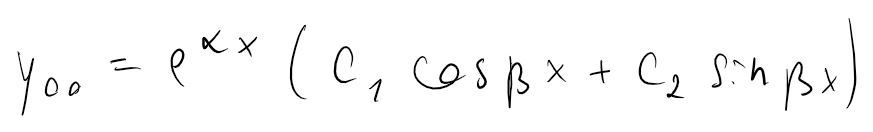 y₀₀ = e^{αx} (C₁ cos βx + C₂ sin βx)